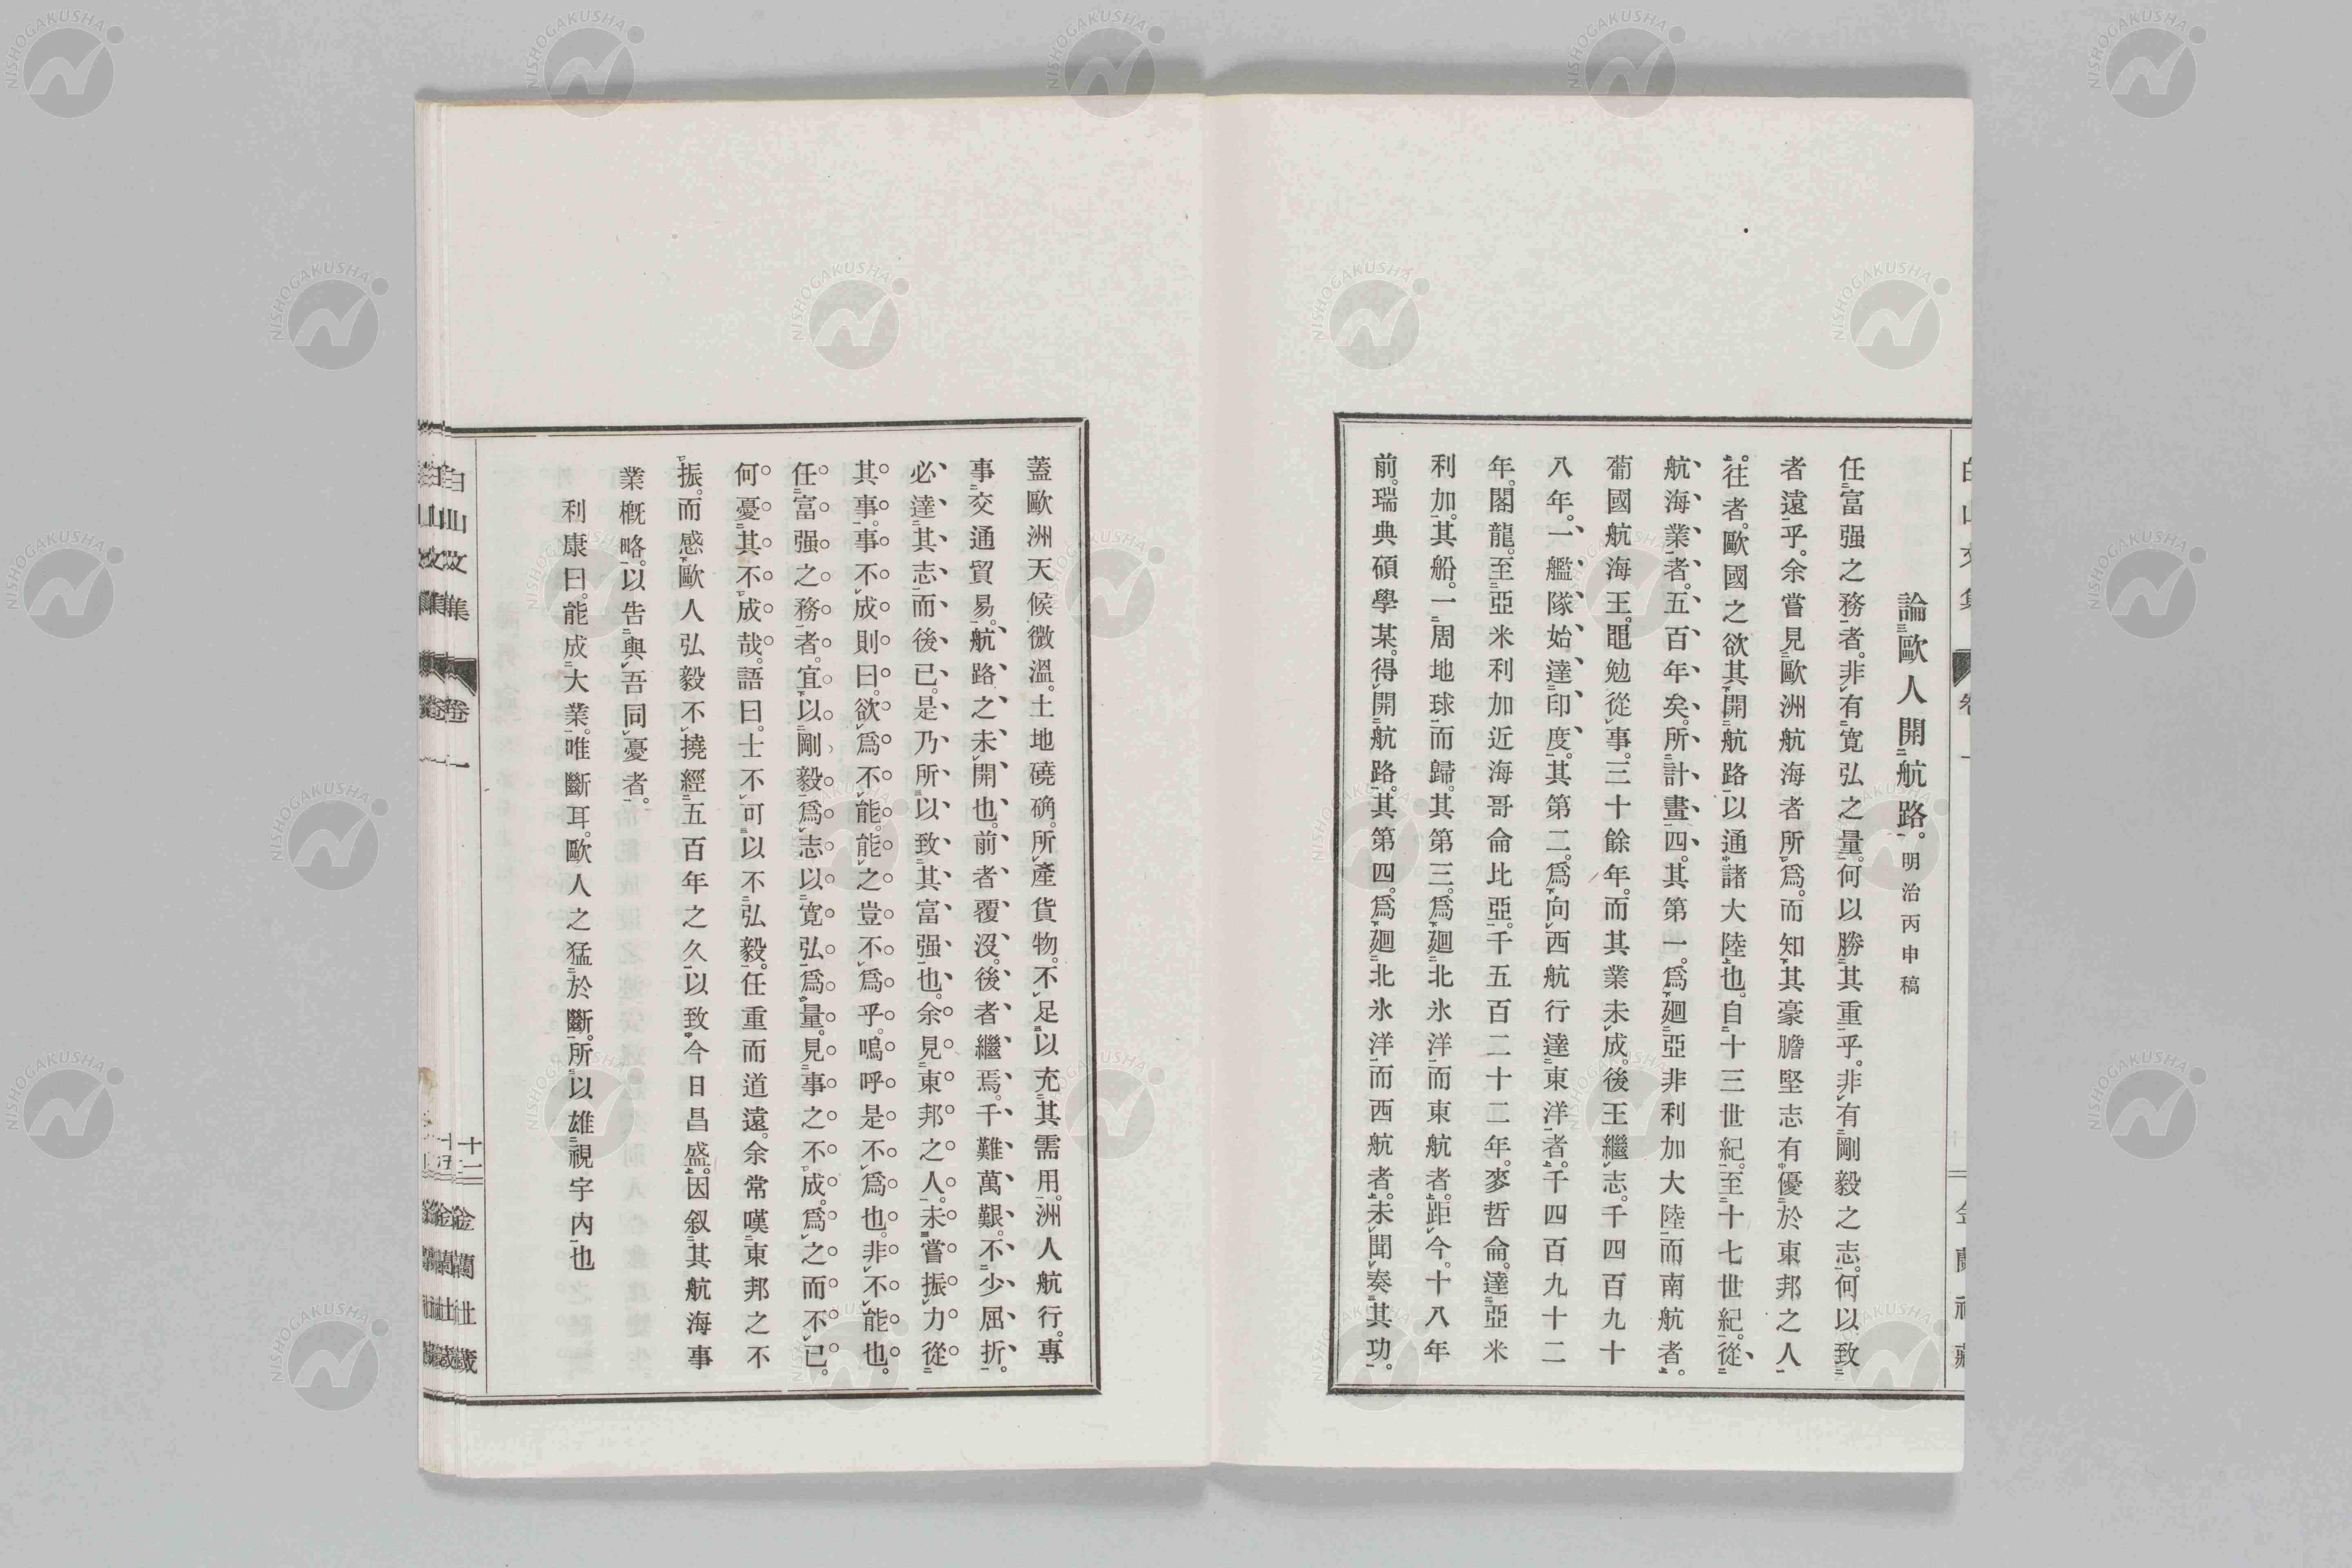 論歐人開航路。明治丙申稿
任富强之務者。非有寬弘之量。何以勝其重乎。非有剛毅之志。何以致
者遠乎。余嘗見歐洲航海者所爲。而知其豪膽堅志有優於東邦之人
。往者。歐國之欲其開航路以通諸大陸也。自十三世紀。至十七世紀。從
航海業者。五百年矣。所計畫四。其第一。爲廻亞非利加大陸而南航者。
葡國航海王。黽勉從事。三十餘年。而其業未成。後王繼志。千四百九十
八年。一艦隊始達印度。其第二。爲向西航行達東洋者。千四百九十二
年。閣龍。至亞米利加近海哥侖比亞。千五百二十二年。麥哲侖。達亞米
利加。其船。一周地球而歸。其第三。爲廻北氷洋而東航者。距今。十八年
前。瑞典碩學某。得開航路。其第四。爲廻北氷洋而西航者。未聞奏其功。
蓋歐洲天候微溫。土地磽确。所產貨物。不足以充其需用。洲人航行。專
事交通貿易。航路之未開也。前者覆沒。後者繼焉。千難萬艱。不少屈折。
必達其志而後已。是乃所以致其富强也。余見東邦之人。未嘗振力從
其事。事不成則曰。欲爲不能。能之豈不爲乎。嗚呼是不爲也。非不能也。
任富强之務者。宜以剛毅爲志以寬弘爲量。見事之不成。爲之而不已。
何憂其不成哉。語曰。士不可以不弘毅。任重而道遠。余常嘆東邦之不
振。而感歐人弘毅不撓經五百年之久以致今日昌盛。因叙其航海事
業概略。以告與吾同憂者。
利康曰。能成大業。唯斷耳。歐人之猛於斷。所以雄視宇內也
白山文集 卷一 十二 金蘭社藏